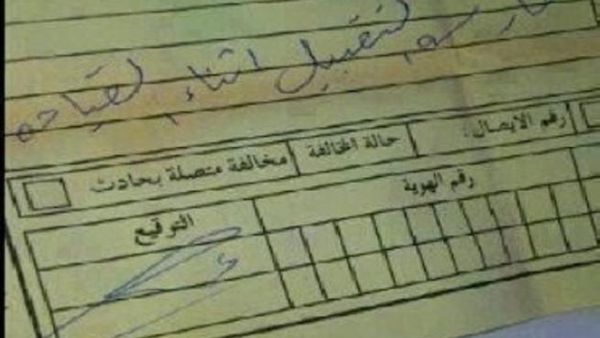 لتقبيل اثناء لقياده
رقم الايصال: حالة المخالفة مخالفة متصلة بحادث
رقم الهوية التوقيع